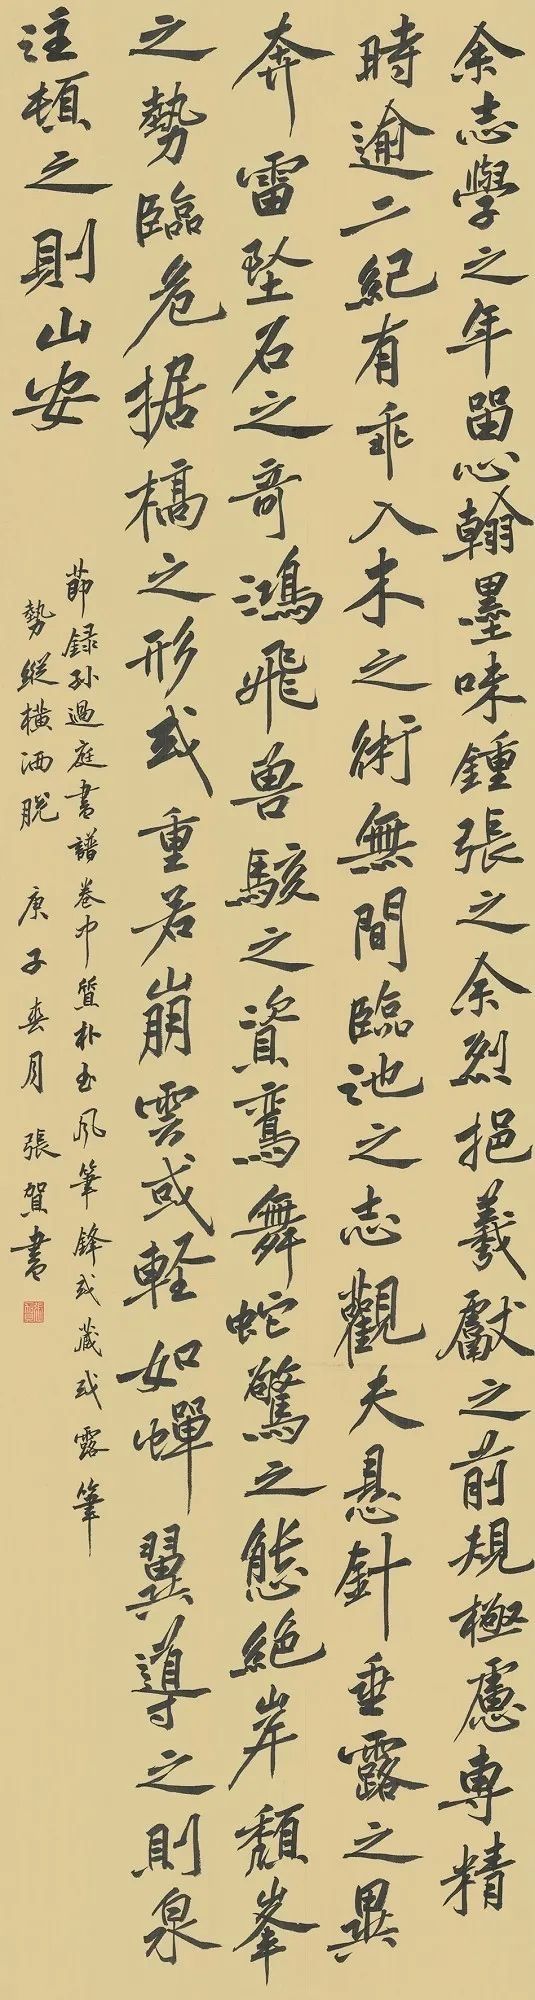 余志學之年留心翰墨味鍾張之余烈挹羲獻之前規極慮專精
時逾二紀有乖入木之術無間臨池之志觀夫悬針垂露之異
奔雷坠石之奇鴻飛兽駭之資鸞舞蛇驚之態絶岸頹峯
之勢臨危据槁之形或重若崩雲或軽如蟬翼導之則泉
注頓之則山安
節録孫過庭書譜卷中質朴書風筆鋒或藏或露筆
勢縱横洒脱 庚子春月 張賀書